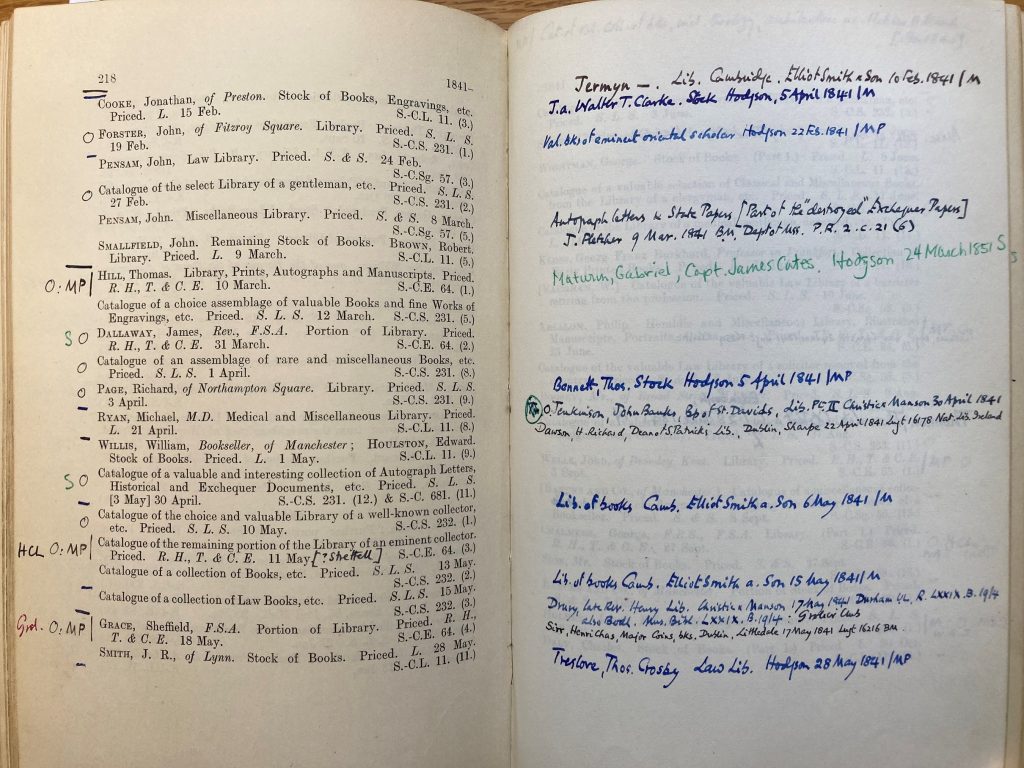 218 1841–
COOKE, Jonathan, of Preston. Stock of Books, Engravings, etc.
Priced. L. 15 Feb. S.-C.L. 11. (3.)
O FORSTER, John, of Fitzroy Square. Library. Priced. S. L. S.
19 Feb. S.-C.S. 231. (1.)
PENSAM, John, Law Library. Priced. S. & S. 24 Feb.
S.-C.Sg. 57. (3.)
O Catalogue of the select Library of a gentleman, etc. Priced. S. L. S.
27 Feb. S.-C.S. 231. (2.)
PENSAM, John. Miscellaneous Library. Priced. S. & S. 8 March.
S.-C.Sg. 57. (5.)
SMALLFIELD, John. Remaining Stock of Books. BROWN, Robert.
Library. Priced. L. 9 March. S.-C.L. 11. (5.)
O: MP/ HILL, Thomas. Library, Prints, Autographs and Manuscripts. Priced.
R. H., T. & C. E. 10 March. S.-C.E. 64. (1.)
Catalogue of a choice assemblage of valuable Books and fine Works of
Engravings, etc. Priced. S. L. S. 12 March. S.-C.S. 231. (5.)
S O DALLAWAY, James, Rev., F.S.A. Portion of Library. Priced.
R. H., T. & C. E. 31 March. S.-C.E. 64. (2.)
O Catalogue of an assemblage of rare and miscellaneous Books, etc.
Priced. S. L. S. 1 April. S.-C.S. 231. (8.)
O PAGE, Richard, of Northampton Square. Library. Priced. S. L. S.
3 April. S.-C.S. 231. (9.)
RYAN, Michael, M.D. Medical and Miscellaneous Library. Priced.
L. 21 April. S.-C.L. 11. (8.)
WILLIS, William, Bookseller, of Manchester; HOULSTON, Edward.
Stock of Books. Priced. L. 1 May. S.-C.L. 11. (9.)
S O Catalogue of a valuable and interesting collection of Autograph Letters,
Historical and Exchequer Documents, etc. Priced. S. L. S.
[3 May] 30 April. S.-C.S. 231. (12.) & S.-C. 681. (11.)
O Catalogue of the choice and valuable Library of a well-known collector,
etc. Priced. S. L. S. 10 May. S.-C.S. 232. (1.)
HCL O: MP/ Catalogue of the remaining portion of the Library of an eminent collector.
Priced. R. H., T. & C. E. 11 May. S.-C.E. 64. (3.)
Catalogue of a collection of Books, etc. Priced. S. L. S. 13 May.
S.-C.S. 232. (2.)
Catalogue of a collection of Law Books, etc. Priced. S. L. S. 15 May.
S.-C.S. 232. (3.)
O: MP/ GRACE, Sheffield, F.S.A. Portion of Library. Priced. R. H.,
T. & C. E. 18 May. S.-C.E. 64. (4.)
SMITH, J. R., of Lynn. Stock of Books. Priced. L. 28 May.
S.-C.L. 11. (11.)
Jermyn —. Lib. Cambridge. Elliot Smith & Son 10 Feb. 1841/M
J.a. Walter T. Clarke. Stock Hodgson, 5 April 1841/M
Val. bks of eminent oriental scholar Hodgson 22 Feb. 1841/MP
Autograph letters & State Papers [Part of the "destroyed" Exchequer Papers]
J. Fletcher 9 Mar. 1841 BM. Dept of Mss. P.R. 2. c. 21 (6)
Maturin, Gabriel, Capt. James Cates. Hodgson 24 March 1851 S
Bennett, Thos. Stock Hodgson 5 April 1841/MP
O. Jenkinson, John Banks, Bp of St. Davids, Lib. Pt. II Christie & Manson 30 April 1841
Dawson, H. Richard, Dean of St. Patricks Lib., Dublin, Sharpe 22 April 1841 Lugt 16178 Nat. Lib. Ireland
Lib. of books Camb. Elliot Smith a. Son 6 May 1841/M
Lib. of books Camb. Elliot Smith a. Son 15 May 1841/M
Drury, late Rev. Henry Lib. Christie & Manson 17 May 1841 Durham UL, R. LXXIX. B. 19/4
also Bodl. Mus. Bibl. LXXIX. B. 19/4 : Grolier Club
Sirr, Henri Chas, Major Coins, bks. Dublin, Littledale 17 May 1841 Lugt 16216 BM
Treslove, Thos. Crosby Law Lib. Hodgson 28 May 1841/MP